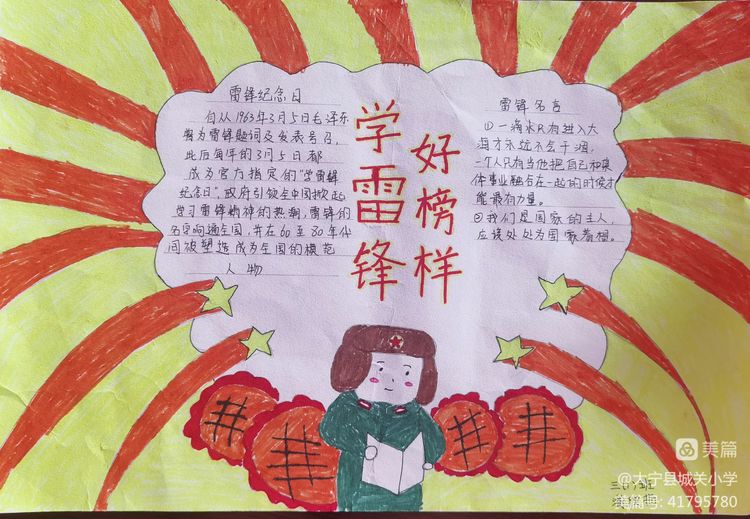 雷锋纪念日
自从1963年3月5日毛泽东
为雷锋题词及发表号召,
此后每年的3月5日都
成为官方指定的"学雷锋
纪念日",政府引领全中国掀起
学习雷锋精神的热潮,雷锋的
名字响遍全国,并在60至80年代
间被塑造成为全国的模范
人物
学雷锋
好榜样
雷锋名言
①一滴水只有进入大
海才永远不会干涸,
一个人只有当他把自己和集
体事业融合在一起的时候才
能最有力量。
②我们是国家的主人,
应该处处为国家着想。
美篇
@大宁县城关小学
美篇号: 41795780